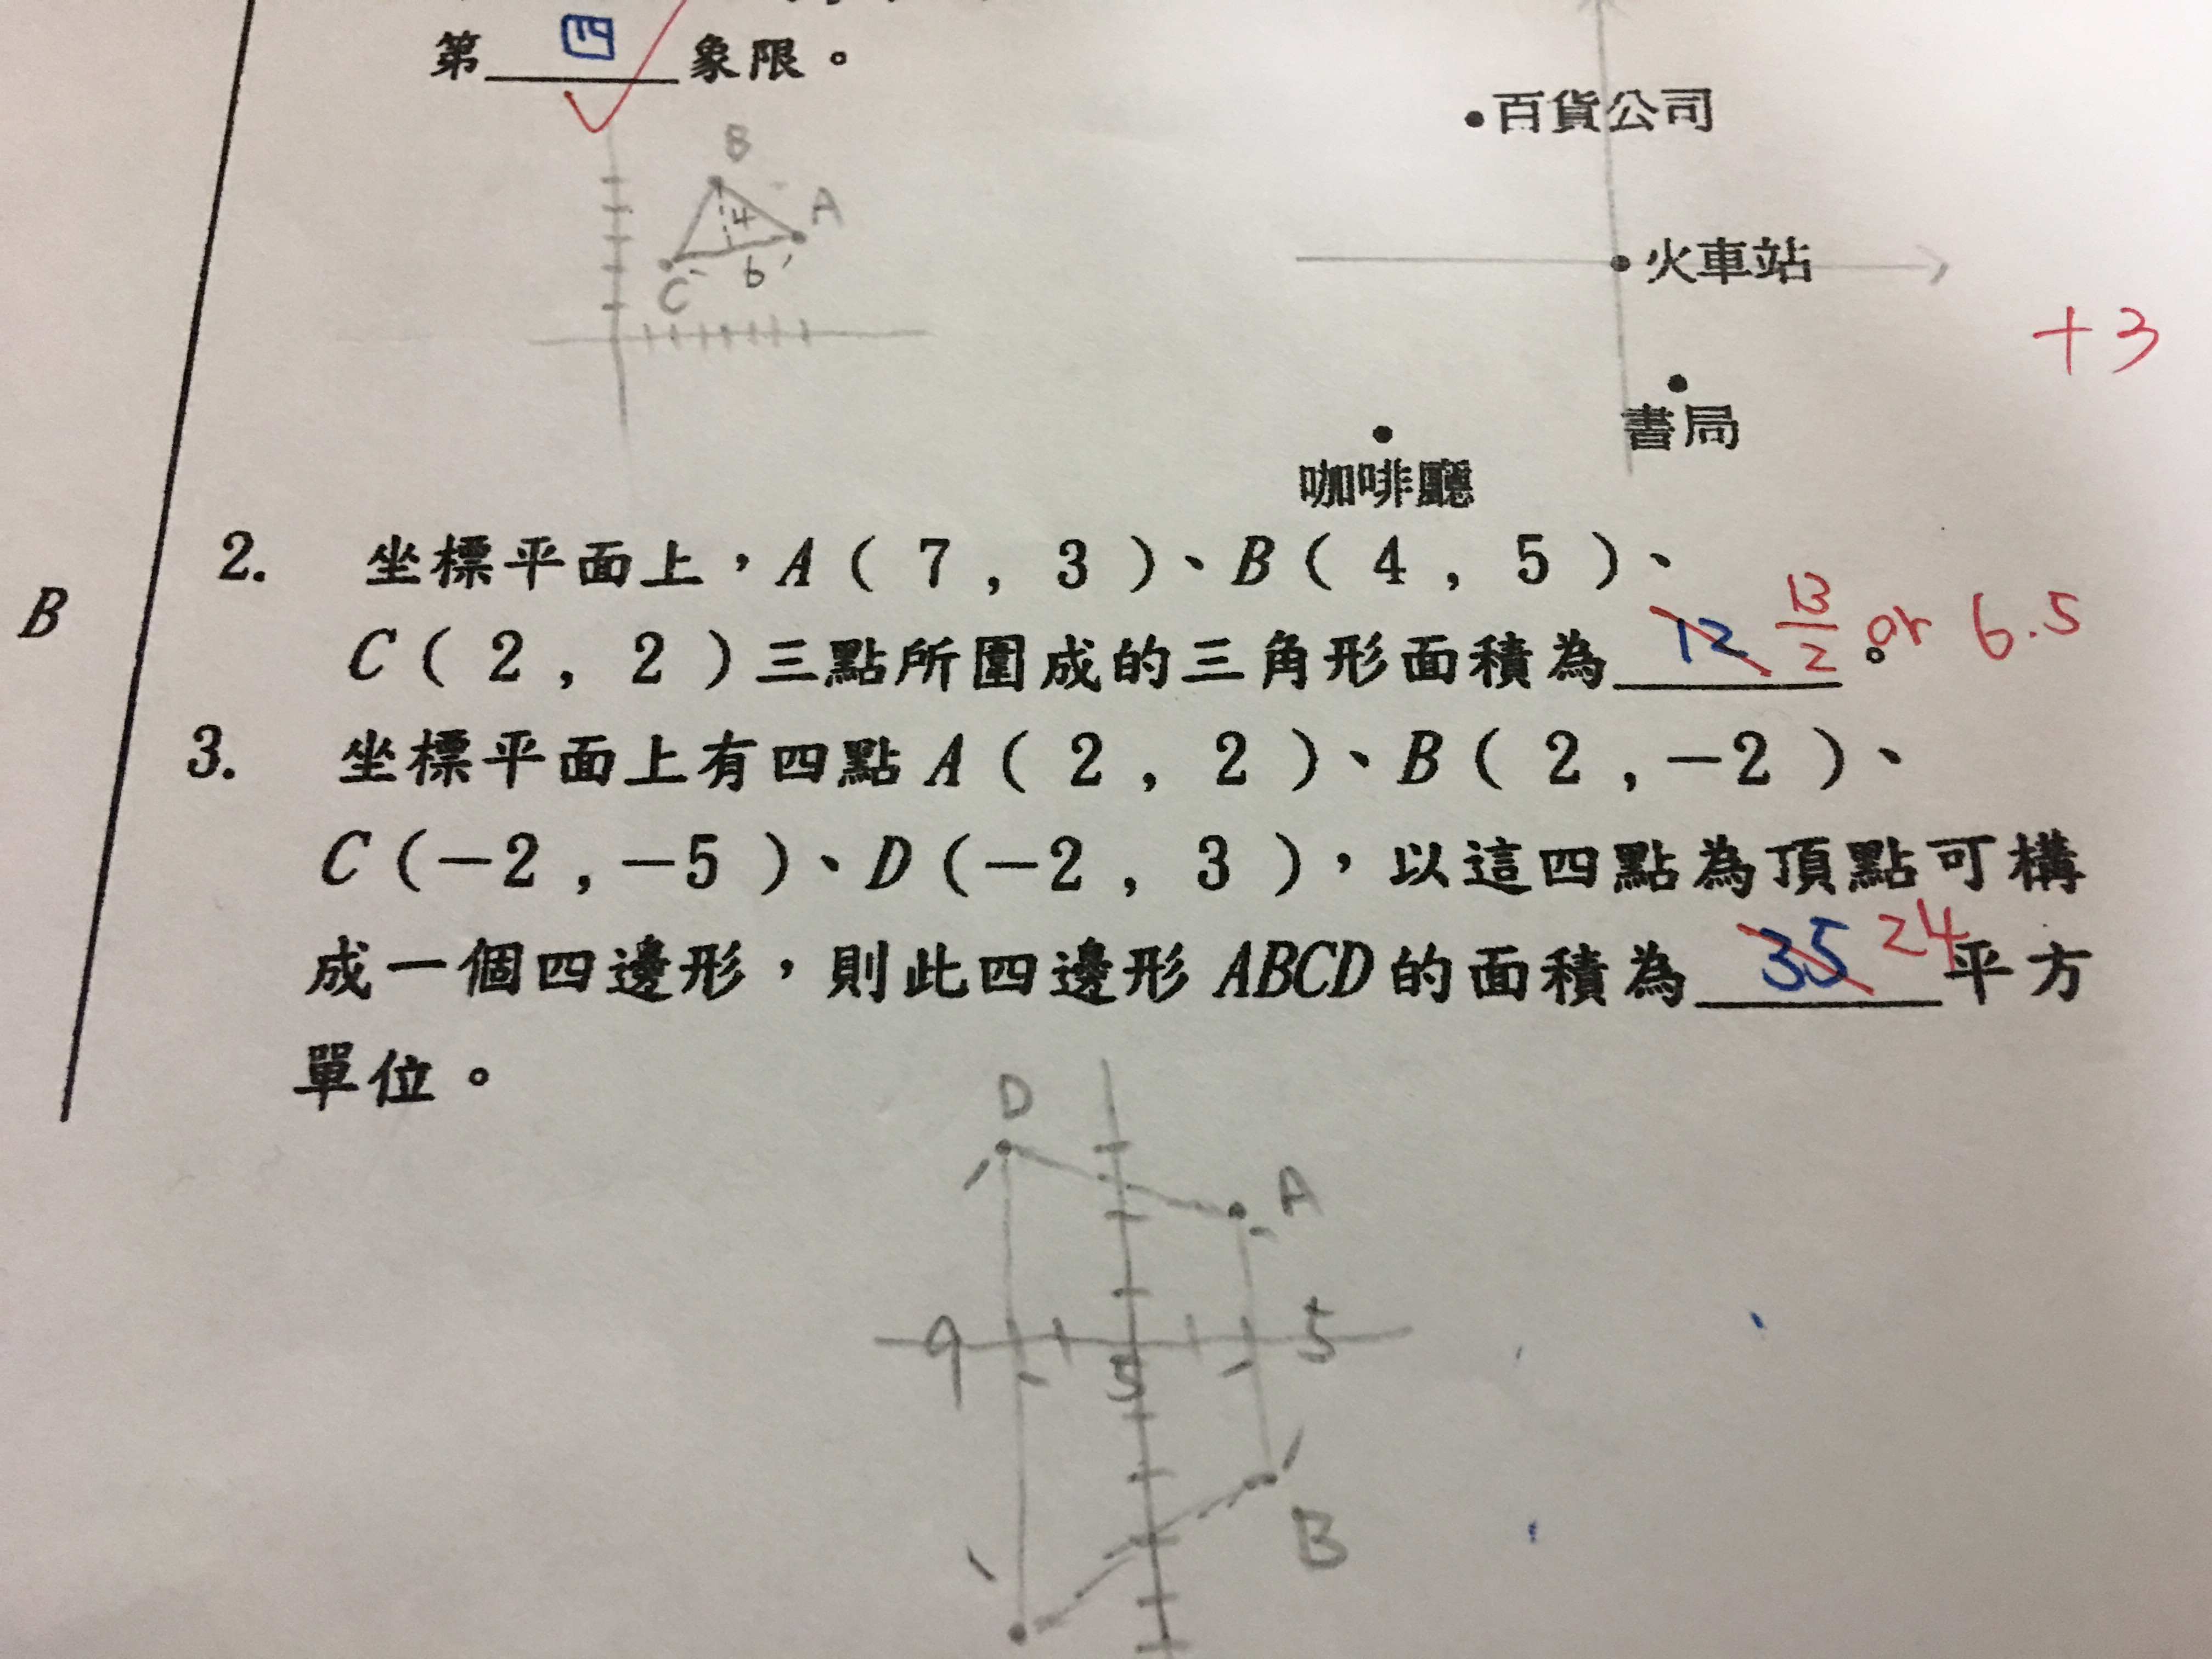 第 四 象限。
B
A
4
6
C
百貨公司
火車站
+3
書局
咖啡廳
2. 坐標平面上,A( 7 , 3 )、B( 4 , 5 )、
B
C( 2 , 2 )三點所圍成的三角形面積為 12 13/2 。 or 6.5
3. 坐標平面上有四點 A( 2 , 2 )、B( 2 , -2 )、
C(-2 , -5 )、D(-2 , 3 ),以這四點為頂點可構
成一個四邊形,則此四邊形 ABCD 的面積為 35 24 平方
單位。
D
A
9 5 5
B